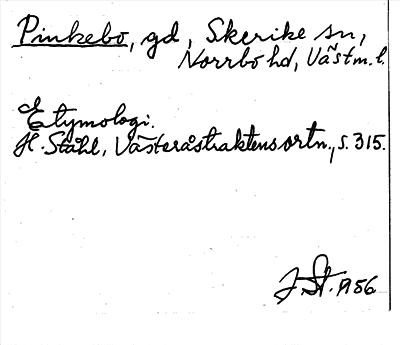 Pinkebo, gd, Skerike sn,
Norrbo hd, Västm. l.
Etymologi.
H. Ståhl, Västeråstraktens ortn., s. 315.
J. St. 1956